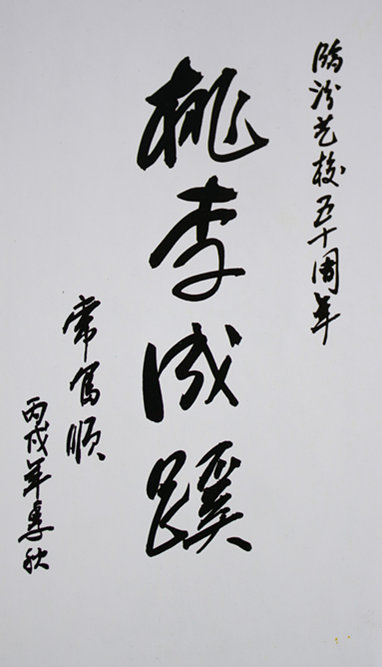 临汾艺校五十周年
桃李成蹊
常顺
丙戌年季秋